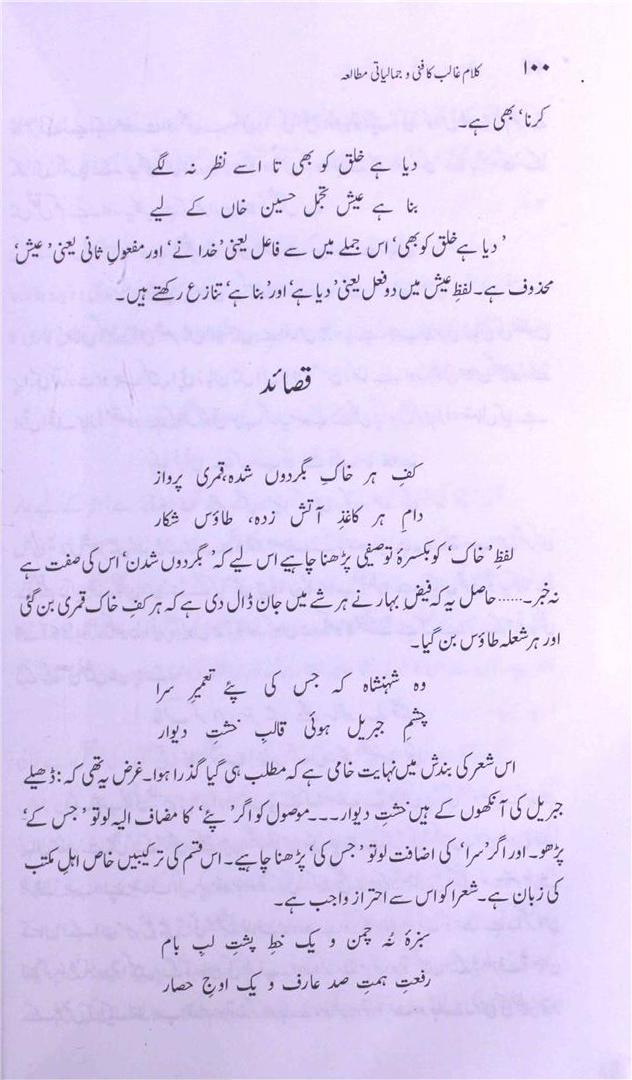 ۱۰۰ کلام غالب کا فنی و جمالیاتی مطالعہ
کرنا، بھی ہے۔
دیا ہے خلق کو بھی تا اسے نظر نہ لگے
بنا ہے عیش تجمل حسین خاں کے لیے
’دیا ہے خلق کو بھی‘ اس جملے میں سے فاعل یعنی ’خدا نے‘ اور مفعولِ ثانی یعنی ’عیش‘
محذوف ہے۔ لفظِ عیش میں دو فعل یعنی ’دیا ہے‘ اور ’بنا ہے‘ تنازع رکھتے ہیں۔
قصائد
کفِ ہر خاکِ بگردوں شدہ، قمری پرواز
دامِ ہر کاغذِ آتش زدہ، طاؤس شکار
لفظِ ’خاک‘ کو بکسرۂ توصیفی پڑھنا چاہیے اس لیے کہ ’بگردوں شدن‘ اس کی صفت ہے
نہ خبر۔...... حاصل یہ کہ فیضِ بہار نے ہر شے میں جان ڈال دی ہے کہ ہر کف خاک قمری بن گئی
اور ہر شعلہ طاؤس بن گیا۔
وہ شہنشاہ کہ جس کی پئے تعمیرِ سرا
چشمِ جبریل ہوئی قالبِ خشتِ دیوار
اس شعر کی بندش میں نہایت خامی ہے کہ مطلب ہی گیا گذرا ہوا۔ غرض یہ تھی کہ: ڈھیلے
جبریل کی آنکھوں کے ہیں خشتِ دیوار۔۔۔۔ موصول کو اگر ’پئے‘ کا مضاف الیہ لو تو ’جس کے‘
پڑھو۔ اور اگر ’سرا‘ کی اضافت لو تو ’جس کی‘ پڑھنا چاہیے۔ اس قسم کی ترکیبیں خاص اہلِ مکتب
کی زبان ہے۔ شعرا کو اس سے احتراز واجب ہے۔
سبزۂ نُہ چمن و یک خطِ پشتِ لبِ بام
رفعتِ ہمتِ صد عارف و یک اوجِ حصار